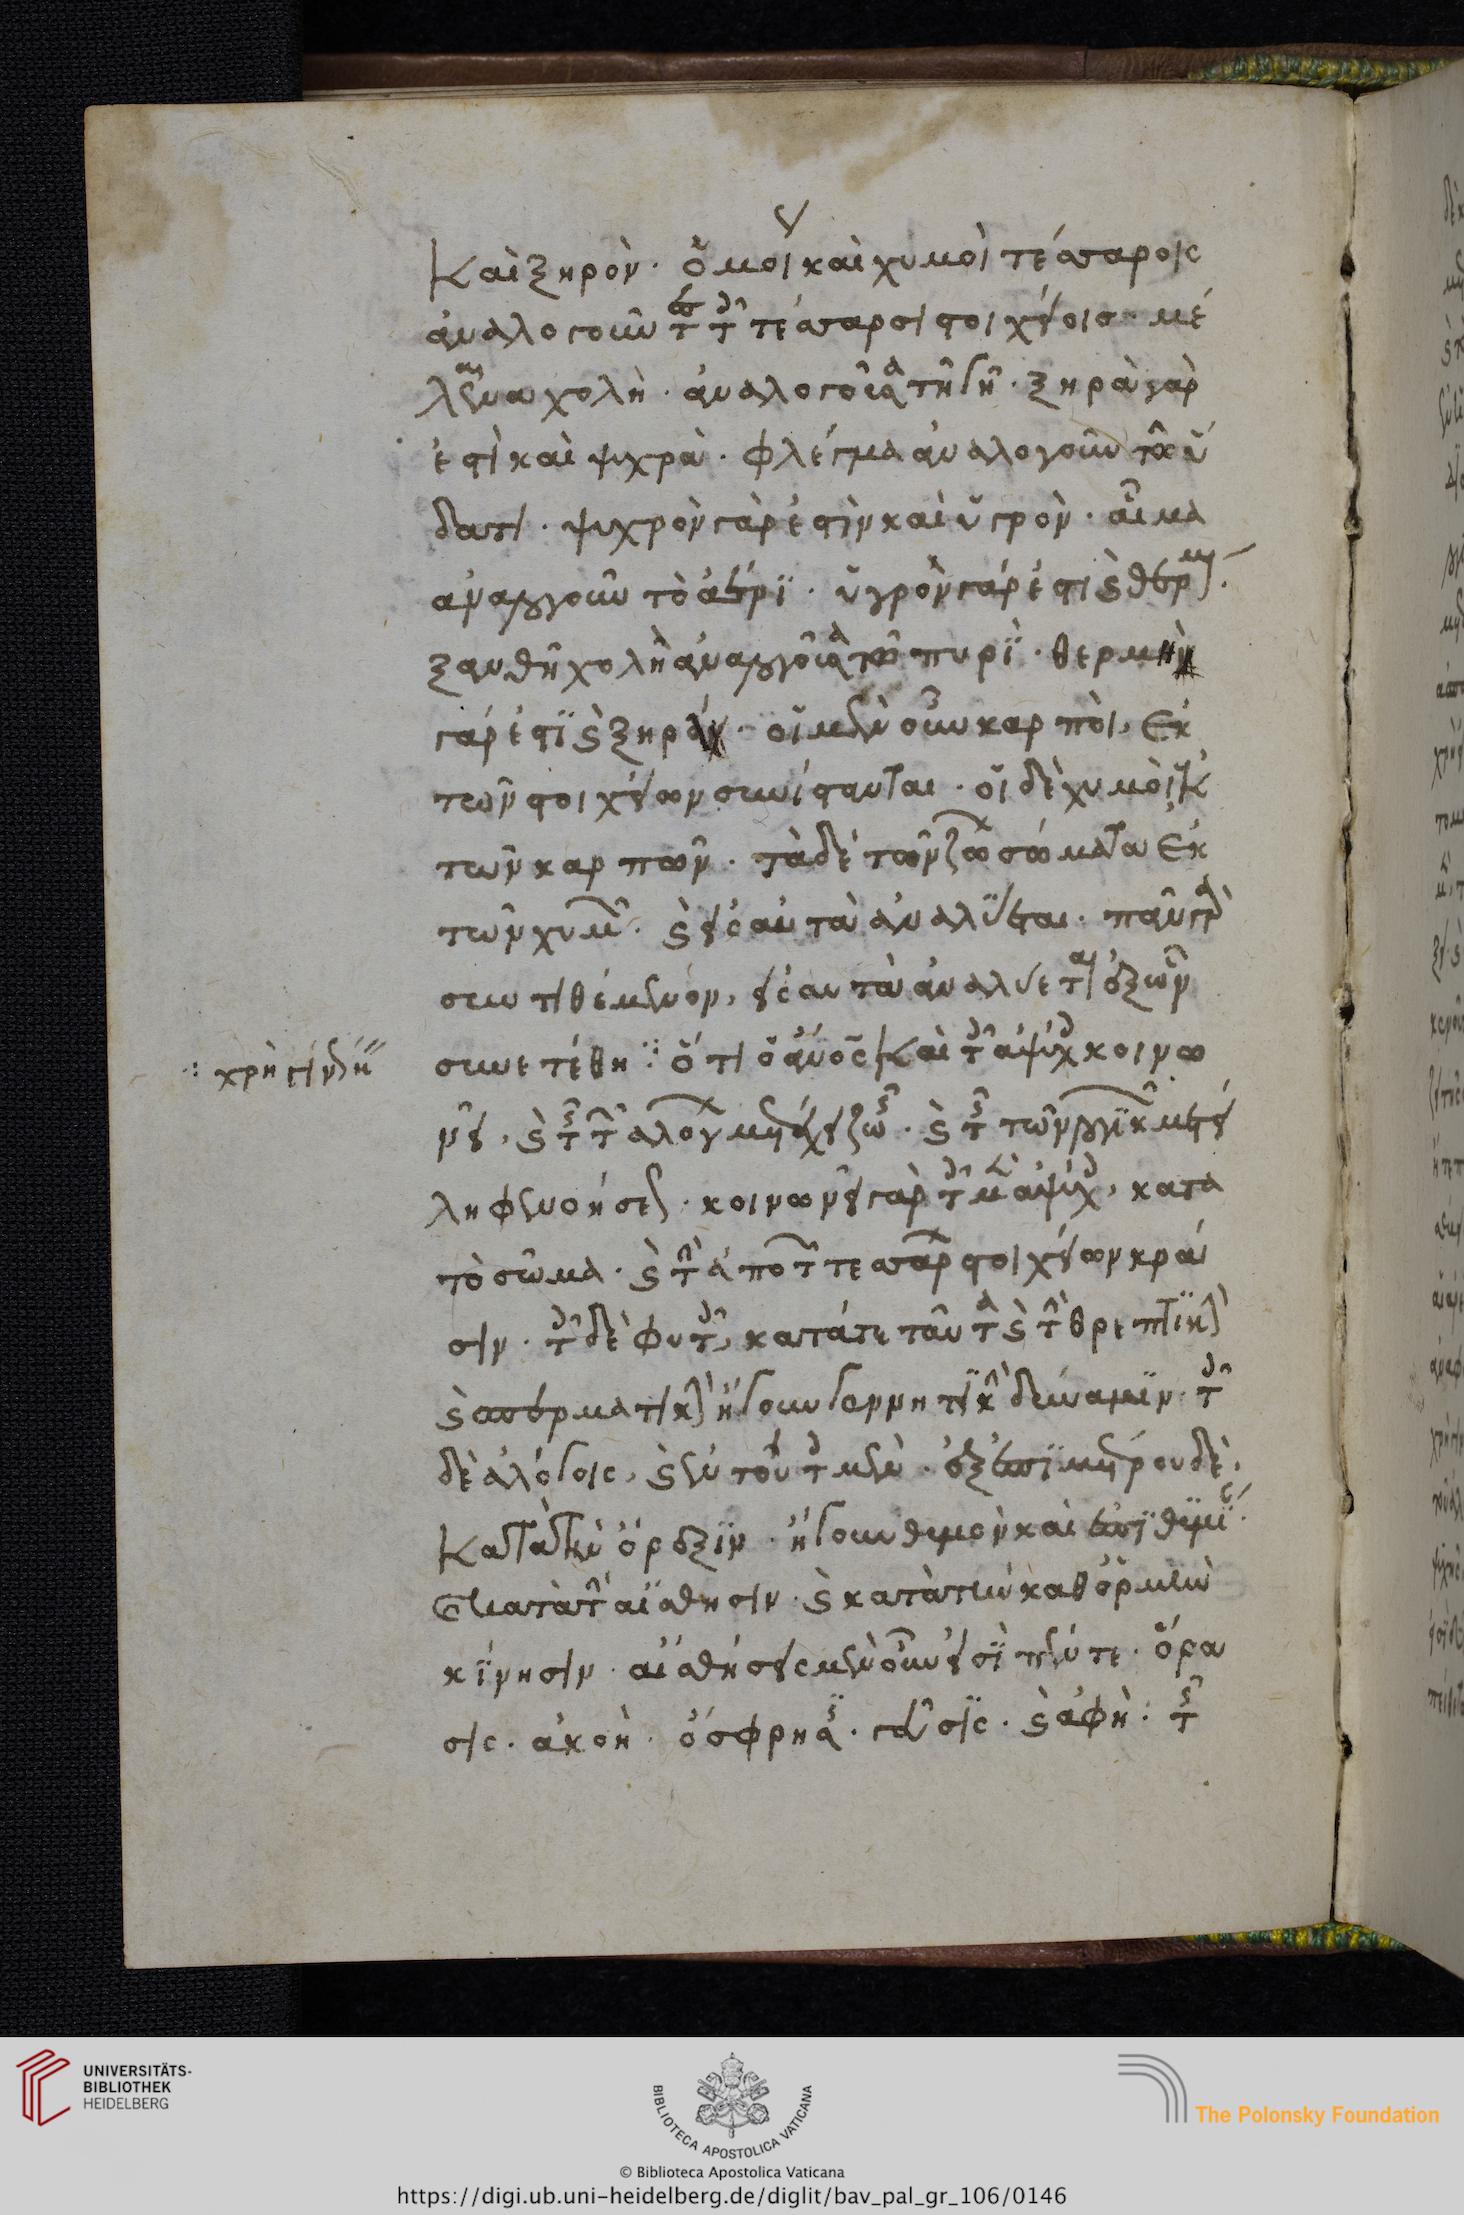 καὶ ξηρὸν· ὅμοι καὶ χυμοὶ τέσσαροις
ἀναλογοῦν τοῖς τέσσαρσι στοιχείοις· μέ
λαινα χολὴ· ἀναλογοῦσα τῆ γῆ· ξηρὰ γὰρ
ἐστὶ καὶ ψυχρὰ· φλέγμα ἀναλογοῦν τῶ ὕ
δατι· ψυχρὸν γὰρ ἐστὶν καὶ ὑγρὸν· αἷμα
ἀναλογοῦν τὸ ἀέρϊ· ὑγρὸν γάρ ἐστι καὶ θερμόν·
ξανθὴ χολὴ ἀναλογοῦσα τῶ πυρῒ· θερμὴ
γάρ ἐστῒ καὶ ξηρά· οἱ μὲν οὖν καρποὶ, ἐκ
τῶν στοιχείων συνίστανται· οἱ δὲ χυμοὶ ἐκ
τῶν καρπῶν· τὰ δὲ τῶν ζώων σώματα ἐκ
τῶν χυμῶν· καὶ εἰς αὐτὰ ἀναλύεται· πᾶν γὰρ
συντιθέμενον, εἰς αὐτὰ ἀναλύεται ἐξ ὧν
συνετέθη: ὅτι ὁ ἄνος καὶ τοῖς ἀψύχοις κοινω
νεῖ, καὶ τῆς τῶν ἀλόγων μετέχει ζωῆς· καὶ τῆς τῶν λογικῶν μετεί
ληφε νοήσεως· κοινωνεῖ γὰρ τοῖς μὲν ἀψύχοις, κατὰ
τὸ σῶμα· καὶ τὴν ἀπὸ τῶν τεσσάρων στοιχείων κρά
σιν· τοῖς δὲ φυτοῖς, κατάτε ταῦτα καὶ τὴν θρεπτϊκὴν
καὶ σπερματικὴν ἤγουν γεννητϊκὴν δύναμϊν· τοῖς
δὲ ἀλόγοις, καὶ ἐν τούτοις μὲν· ἐξ ἐπϊμέρου δὲ,
κατὰ τὴν ὄρεξϊν· ἤγουν θυμὸν καὶ ἐπϊθυμΐαν·
κατὰ τὴν αἴσθησιν· καὶ κατὰ τὴν καθ ὁρμὴν
κίνησιν· αἰσθήσεις μὲν οὖν εἰσῒ πέντε· ὅρα
σις· ἀκοὴ· ὄσφρησϊς· γεῦσϊς· καὶ ἀφὴ· τῆς
: χρὴ γινώ
digi.ub.uni-heidelberg.de
UNIVERSITÄTS-
BIBLIOTHEK
HEIDELBERG
BIBLIOTECA APOSTOLICA VATICANA
© Biblioteca Apostolica Vaticana
The Polonsky Foundation
https://digi.ub.uni-heidelberg.de/diglit/bav_pal_gr_106/0146